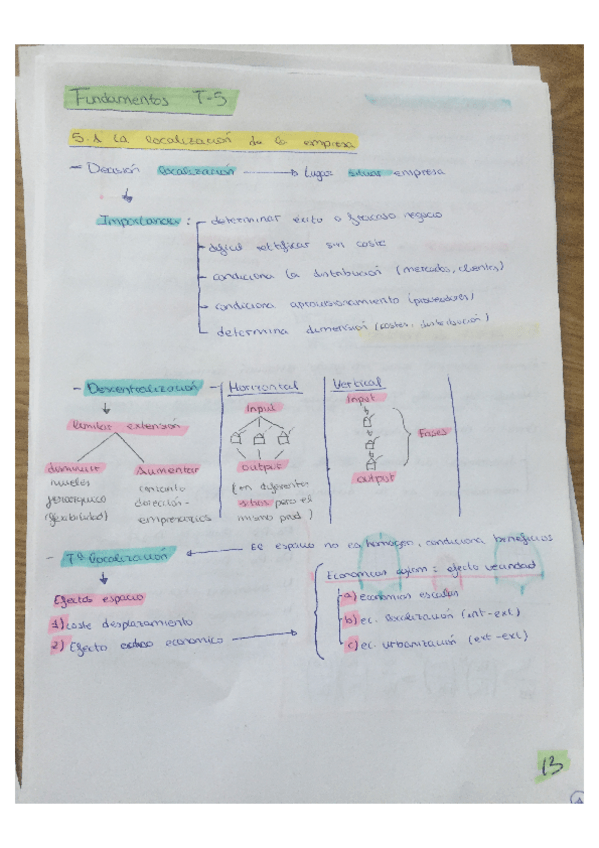 Fundamentos T-5
5.1 La localización de la empresa
- Decisión localización → Lugar situar empresa
Importancia: - determinar éxito o fracaso negocio
- difícil rectificar sin coste
- condiciona la distribución (mercados, clientes)
- condiciona aprovisionamiento (proveedores)
- determina dimensión (costes, distribución)
- Descentralización - Horizontal Vertical
limitar extensión
input
input
output
Fases
output
disminuir
niveles
jerárquico
(flexibilidad)
Aumentar
contacto
dirección-
empresarios
(en diferentes
sitios pero el
mismo prod)
- Tª localización ← El espacio no es homogen, condiciona beneficios
Efectos espacio
1) coste desplazamiento
2) Efecto económico →
Economías aglom: efecto vecindad
a) economías escalas
b) ec. localización (int-ext)
c) ec. urbanización (ext-ext)
13